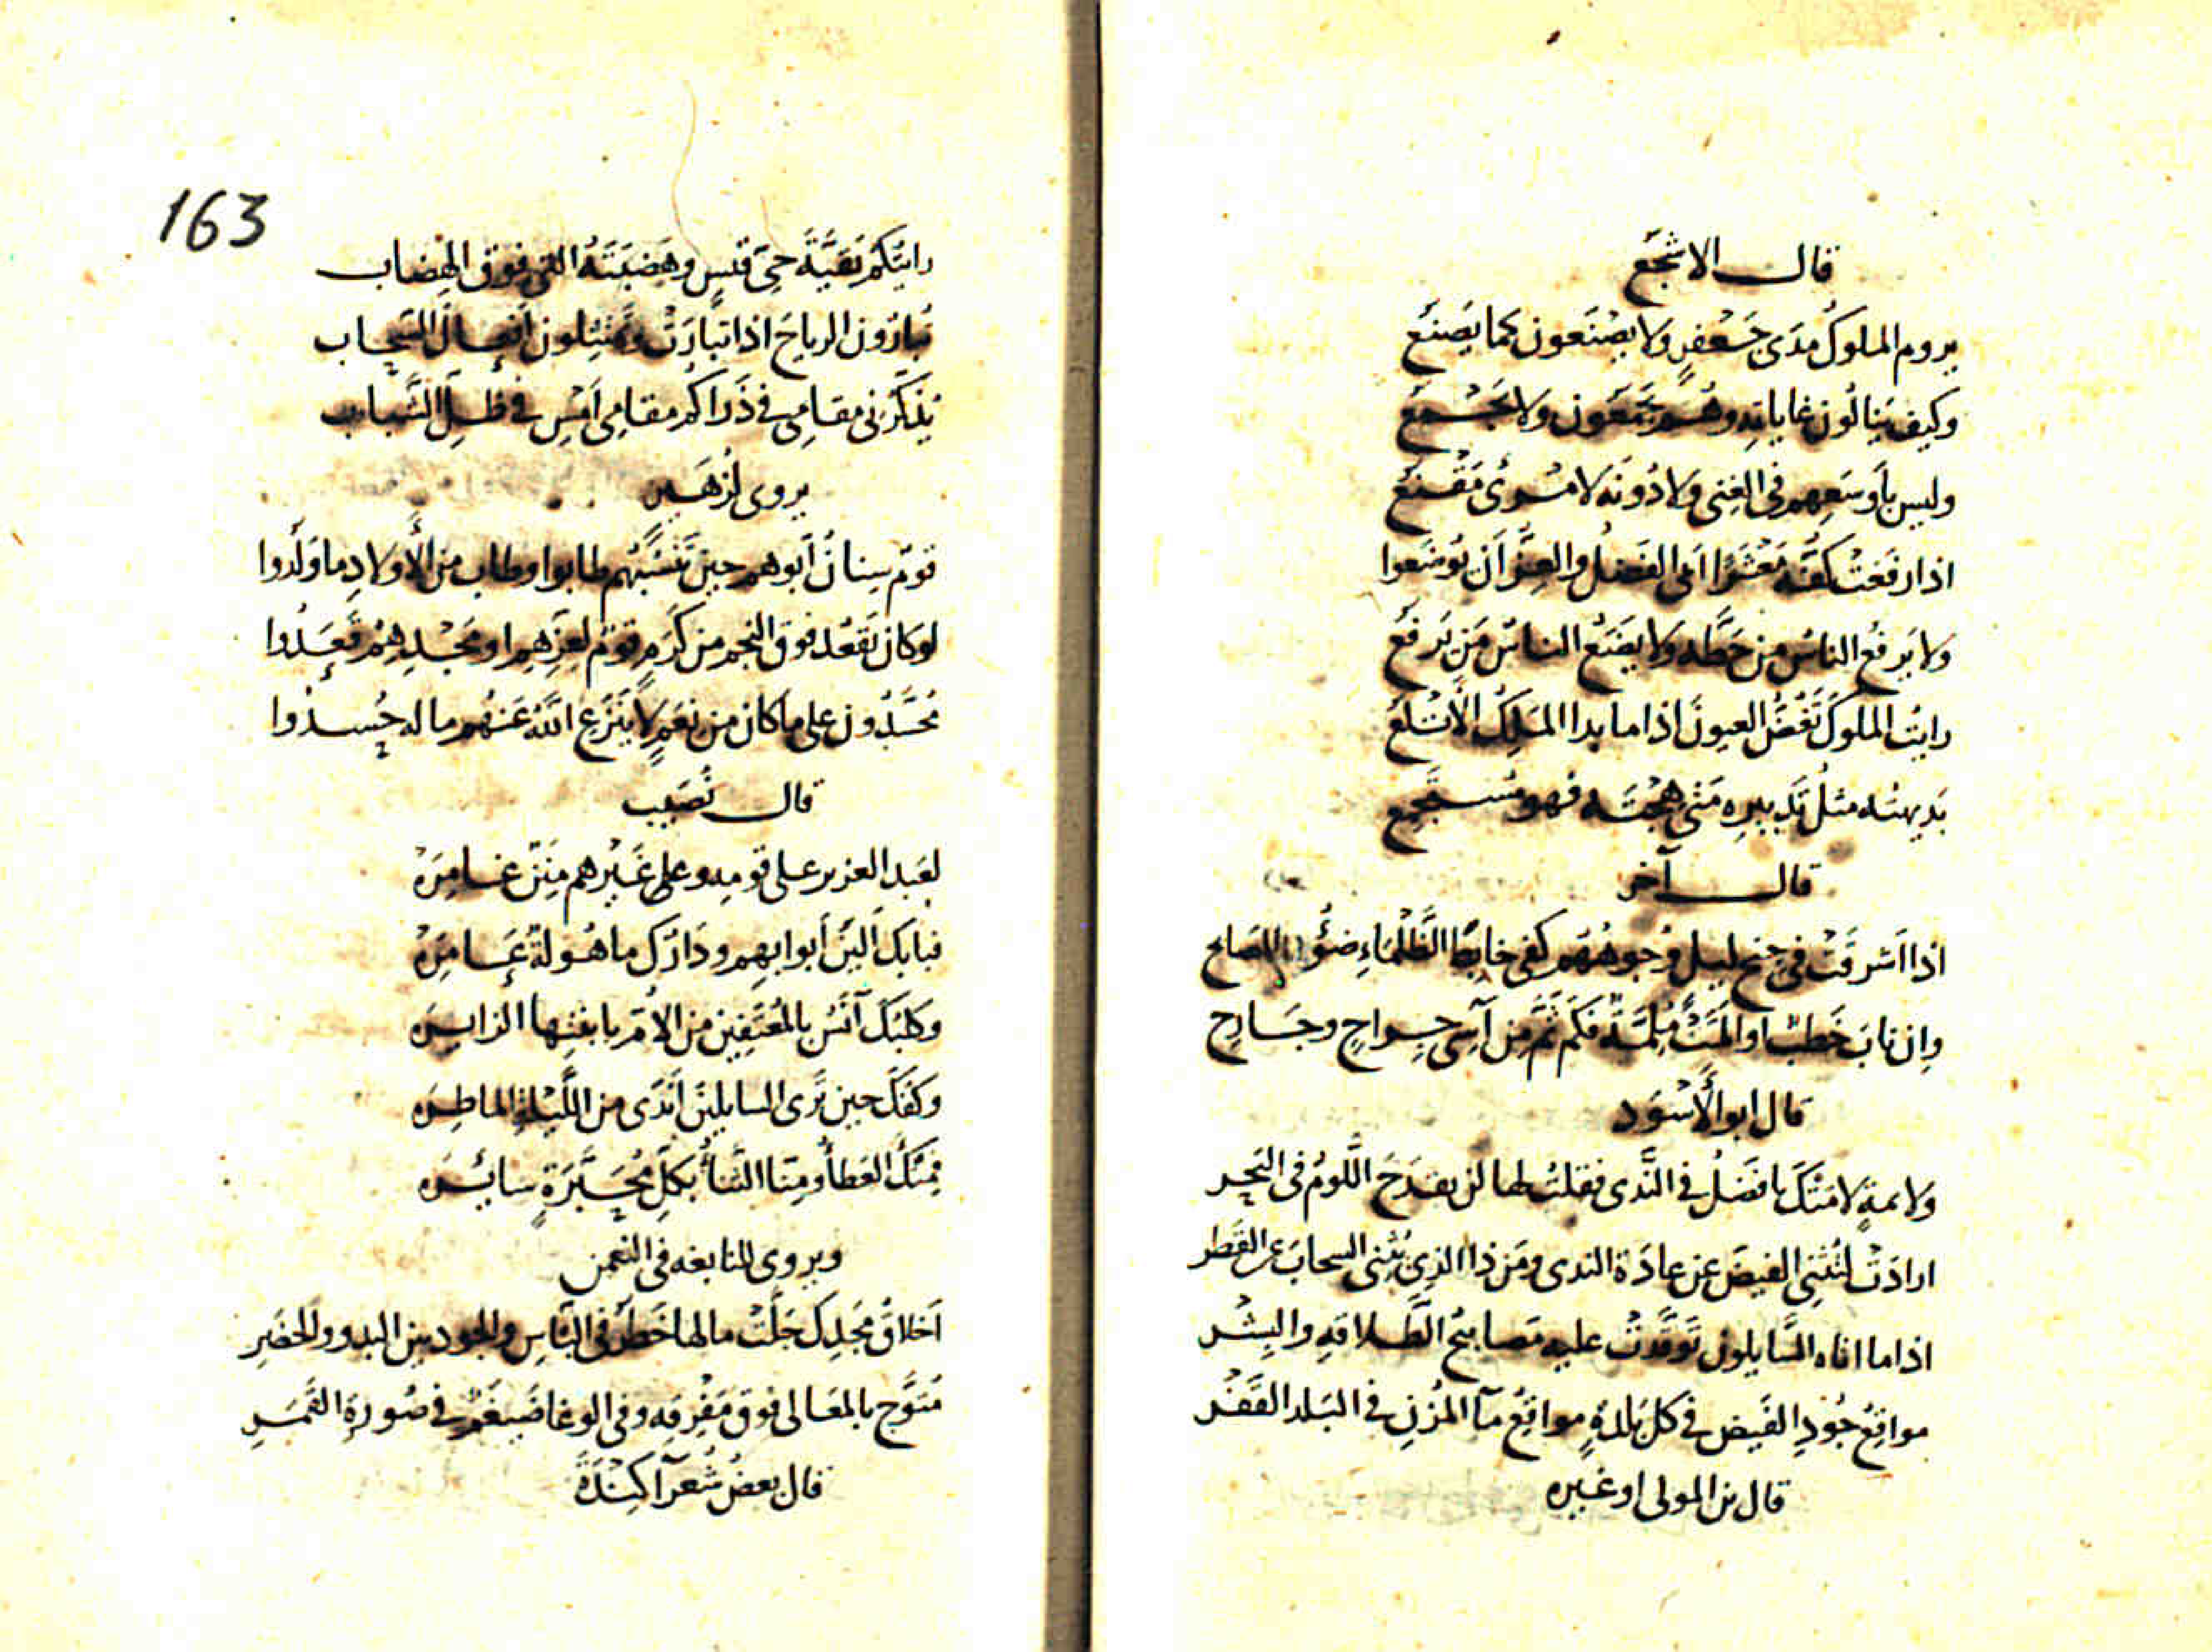 قال الاشجع
يروم الملوكُ مَدَى جَعْفرٍ ولا يصْنَعون كما يَصنَع
وكيف يَنالُون غاياتِه وهُم يجمَعون ولا يَجْمع
وليس بأَوسَعِهم في الغِنى ولا دُونَه لامْرِئ مَقْنَع
اذا رفَعَتْ كفُّه مَعْشَرًا ابى الفَضلُ والعِزُّ اَن يُوضَعوا
ولا يَرفعُ الناسُ من حَطَّه ولا يضَعُ الناسُ مَن يَرفع
رايتُ الملوكَ تَغُضُّ العيونَ اذا ما بدا الملِكُ الاَتْلع
بَديهتُه مثلُ تَدبيرِه مَتى هِجْتَه فهو مُستَجمِع
قال آخر
اذا اَشرقَتْ في جنح ليلٍ وُجوهُهم كفى خابِطَ الظَّلْمَاءِ ضَوُْ المصابح
وان نابَ خَطبٌ او المَّتْ مُلِمَّةٌ فكَم ثَمَّ مِن آسِى جِراحٍ وجَارِح
قال ابو الأَسْوَد
ولائمةٍ لامَتْكَ يا فَضلُ في النَّدى فقلتُ لها لن يقدَحَ اللَّومُ في البَحر
ارادَتْ لتُثنِي الفيضَ عن عادَة الندى ومَن ذا الذِي يُثنِى السحابَ عن القَطر
اذا ما اتاه السَّايلون تَوقَّدَتْ عليه مَصابيحُ الطَّلاقةِ والبِشْر
مواقِعُ جُودِ الفَيض في كل بَلدةٍ مواقِعُ مآ المُزنِ في البَلد القَفْر
قال بن المولى او غيره
163
رايتُكم بَقِيَّةَ حَىِّ قَيسٍ وهَضبَتَهُ التي فوق الهِضاب
تُبارُون الرياحَ اذا تبارَتْ وتَمتثِلون اَفعالَ السَّحاب
يُذكّرُنى مقامِى في ذَراكُم مقامِى اَمْسِ في ظِلِّ الشَّباب
يروى لزُهَير
قومٌ سِنانٌ اَبوهم حين تَنسُبُهم طابوا وطاب من الأَولادِ ما ولَدوا
لو كان يَقعُد فوق النجم من كَرَمٍ قومٌ لعِزِّهِم او مَجْدِهِمْ قَعَدُوا
مُحَسَّدُون على ما كان من نِعَمٍ لا يَنْزِع اللّهُ عَنهُم ما له حُسِدُوا
قال نُصَيب
لعَبد العزيز على قومِه وعلى غَيْرِهم مِنَنٌ غامِرَهْ
فبابُكَ اَليَنُ أَبوابِهِم ودَارُكَ ماهُولةٌ عَامِرَهْ
وكلبُكَ آنَسُ بالمُعتَفِين من الاُمّ بابنتِها الزايرَه
وكَفُّكَ حين تَرى السايلينَ اَندَى من اللَّيلةِ الماطِرَه
فمِنْكَ العَطاُ ومِنّا الثَّناُ بكلِّ مُحَبَّرَةٍ سائِرَه
ويروى للنابغه في النعمن
اَخلاقُ مَجدِكَ جَلَّتْ ما لها خَطَرٌ في البَاسِ والجُود بين البدو والحضَرِ
مُتَوَّج بالمعَالى فوق مَفْرِقِه وفي الوغا ضَيغَمٌ في صُورَةِ القَمَرِ
قال بعضُ شُعَرآ كِنْدَةَ